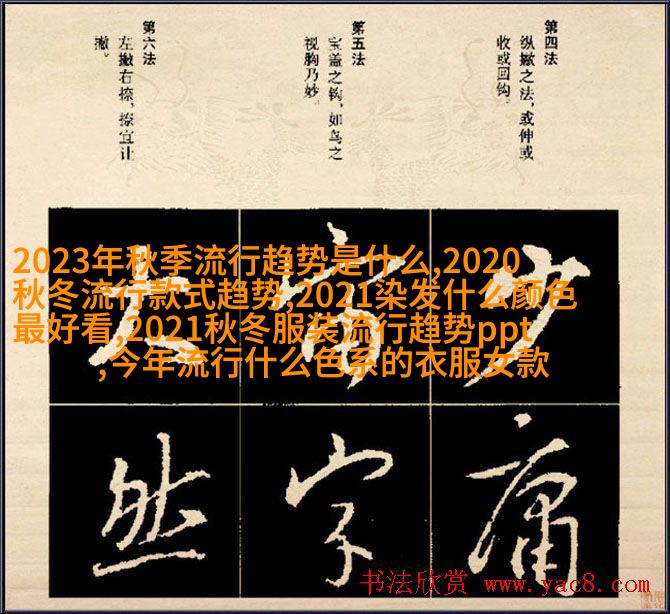 第四法
纵撇之法，或伸或
收或回钩。
第五法
宝盖之钩，如鸟之
视胸乃妙。
第六法
左撇右捺，捺宜让
撇。
2023年秋季流行趋势是什么,2020
秋冬流行款式趋势,2021染发什么颜色
最好看,2021秋冬服装流行趋势ppt
,今年流行什么色系的衣服女款
少
大
庸
字
然
书法欣赏 www.yac8.com